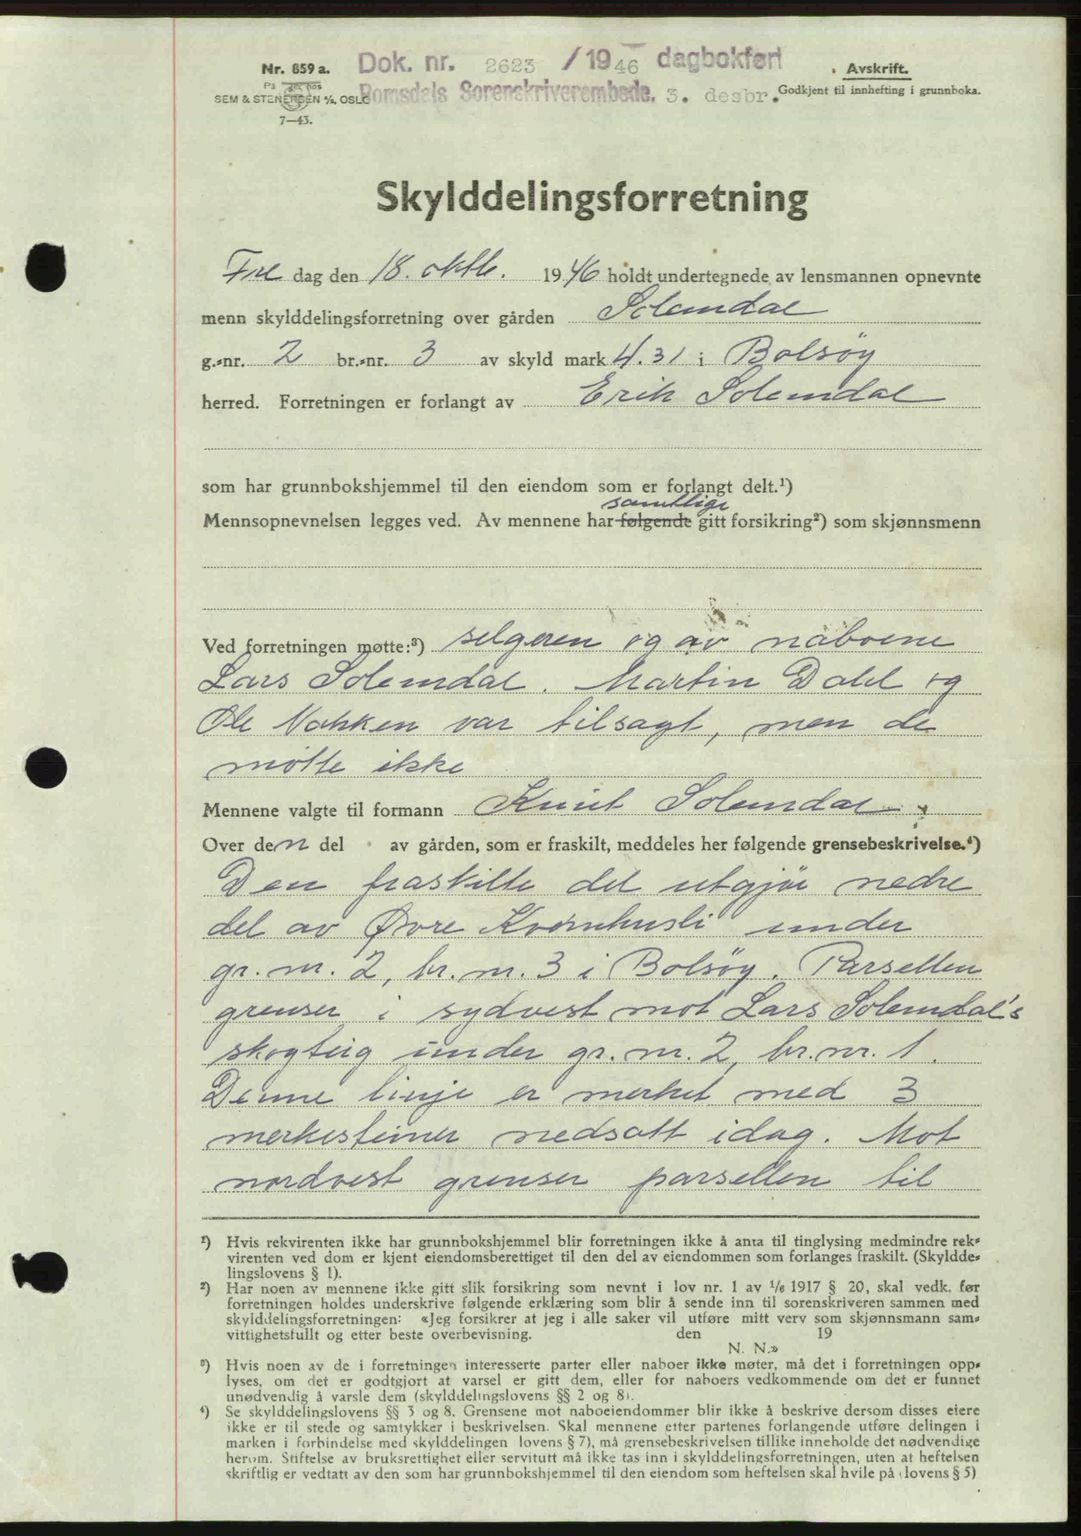 Dok. nr. 2623 / 1946 dagbokført
Romsdals Sorenskriverembede. 3. desbr.
Nr. 859 a.
På lager hos
SEM & STENERSEN A/S, OSLO
7—43.
Avskrift.
Godkjent til innhefting i grunnboka.
Skylddelingsforretning
Fre dag den 18. oktb. 1946 holdt undertegnede av lensmannen opnevnte
menn skylddelingsforretning over gården Solemdal
g.-nr. 2 br.-nr. 3 av skyld mark 4.31 i Bolsøy
herred. Forretningen er forlangt av Erik Solemdal
som har grunnbokshjemmel til den eiendom som er forlangt delt.¹)
samtlige
Mennsopnevnelsen legges ved. Av mennene har følgende gitt forsikring²) som skjønnsmenn
Ved forretningen møtte:³) selgeren og av naboene
Lars Solemdal. Martin Dahl og
Ole Nakken var tilsagt, men de
møtte ikke
Mennene valgte til formann Knut Solemdal
Over den del av gården, som er fraskilt, meddeles her følgende grensebeskrivelse.⁴)
Den fraskilte del utgjør nedre
del av Øvre Kvernhusli under
gr. nr. 2, br. nr. 3 i Bolsøy. Parsellen
grenser i sydvest mot Lars Solemdal's
skogteig under gr. nr. 2, br. nr. 1.
Denne linje er merket med 3
merkesteiner nedsatt idag. Mot
nordvest grenser parsellen til
¹) Hvis rekvirenten ikke har grunnbokshjemmel blir forretningen ikke å anta til tinglysing medmindre rek-
virenten ved dom er kjent eiendomsberettiget til den del av eiendommen som forlanges fraskilt. (Skyldde-
lingslovens § 1).
²) Har noen av mennene ikke gitt slik forsikring som nevnt i lov nr. 1 av 1/6 1917 § 20, skal vedk. før
forretningen holdes underskrive følgende erklæring som blir å sende inn til sorenskriveren sammen med
skylddelingsforretningen: «Jeg forsikrer at jeg i alle saker vil utføre mitt verv som skjønnsmann sam-
vittighetsfullt og etter beste overbevisning. den 19
N. N.»
³) Hvis noen av de i forretningen interesserte parter eller naboer ikke møter, må det i forretningen opp-
lyses, om det er godtgjort at varsel er gitt dem, eller for naboers vedkommende om det er funnet
unødvendig å varsle dem (skylddelingslovens §§ 2 og 8).
⁴) Se skylddelingslovens §§ 3 og 8. Grensene mot naboeiendommer blir ikke å beskrive dersom disses eiere
ikke er til stede og samtykker i beskrivelsen. Skal mennene etter partenes forlangende utføre delingen i
marken i forbindelse med skylddelingen lovens § 7), må grensebeskrivelsen tillike inneholde det nødvendige
herom. Stiftelse av bruksrettighet eller servitutt må ikke tas inn i skylddelingsforretningen, uten at heftelsen
skriftlig er vedtatt av den som har grunnbokshjemmel til den eiendom som heftelsen skal hvile på (lovens § 5)